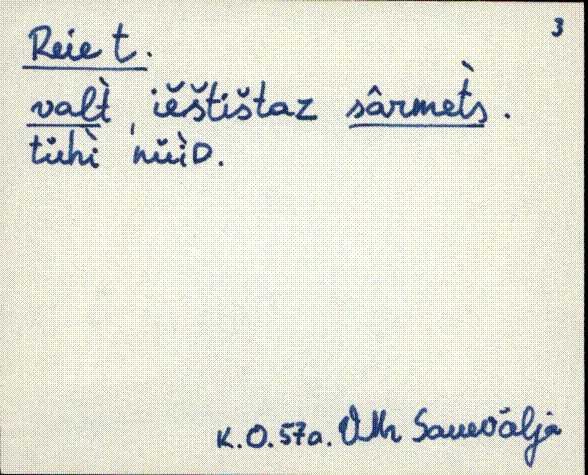 3
Reie t.
valt̀, iĕštištaz sârmet̀s.
tŭhì nŭìD.
K.O. 57a. VMr Sauevälja